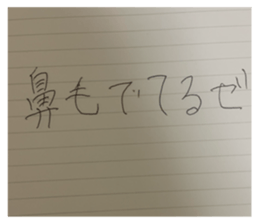 鼻もでてるぜ